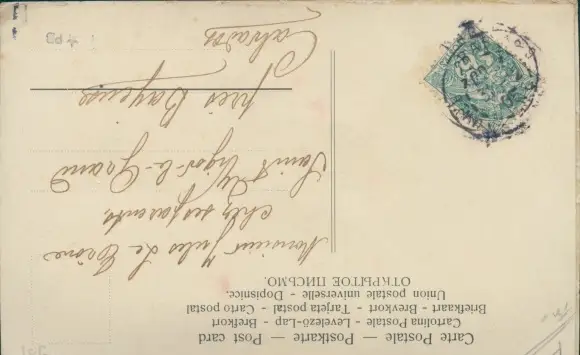 Carte Postale — Postkarte — Post card
Cartolina Postale - Levelező-Lap - Brefkort
Briefkaart - Brevkort - Tarjeta postal - Carto postal
Union postale universelle - Dopisnice.
ОТКРЫТОЕ ПИСЬМО.
Monsieur Jules Le
chez ses parents.
Saint
près Bayeux
Calvados